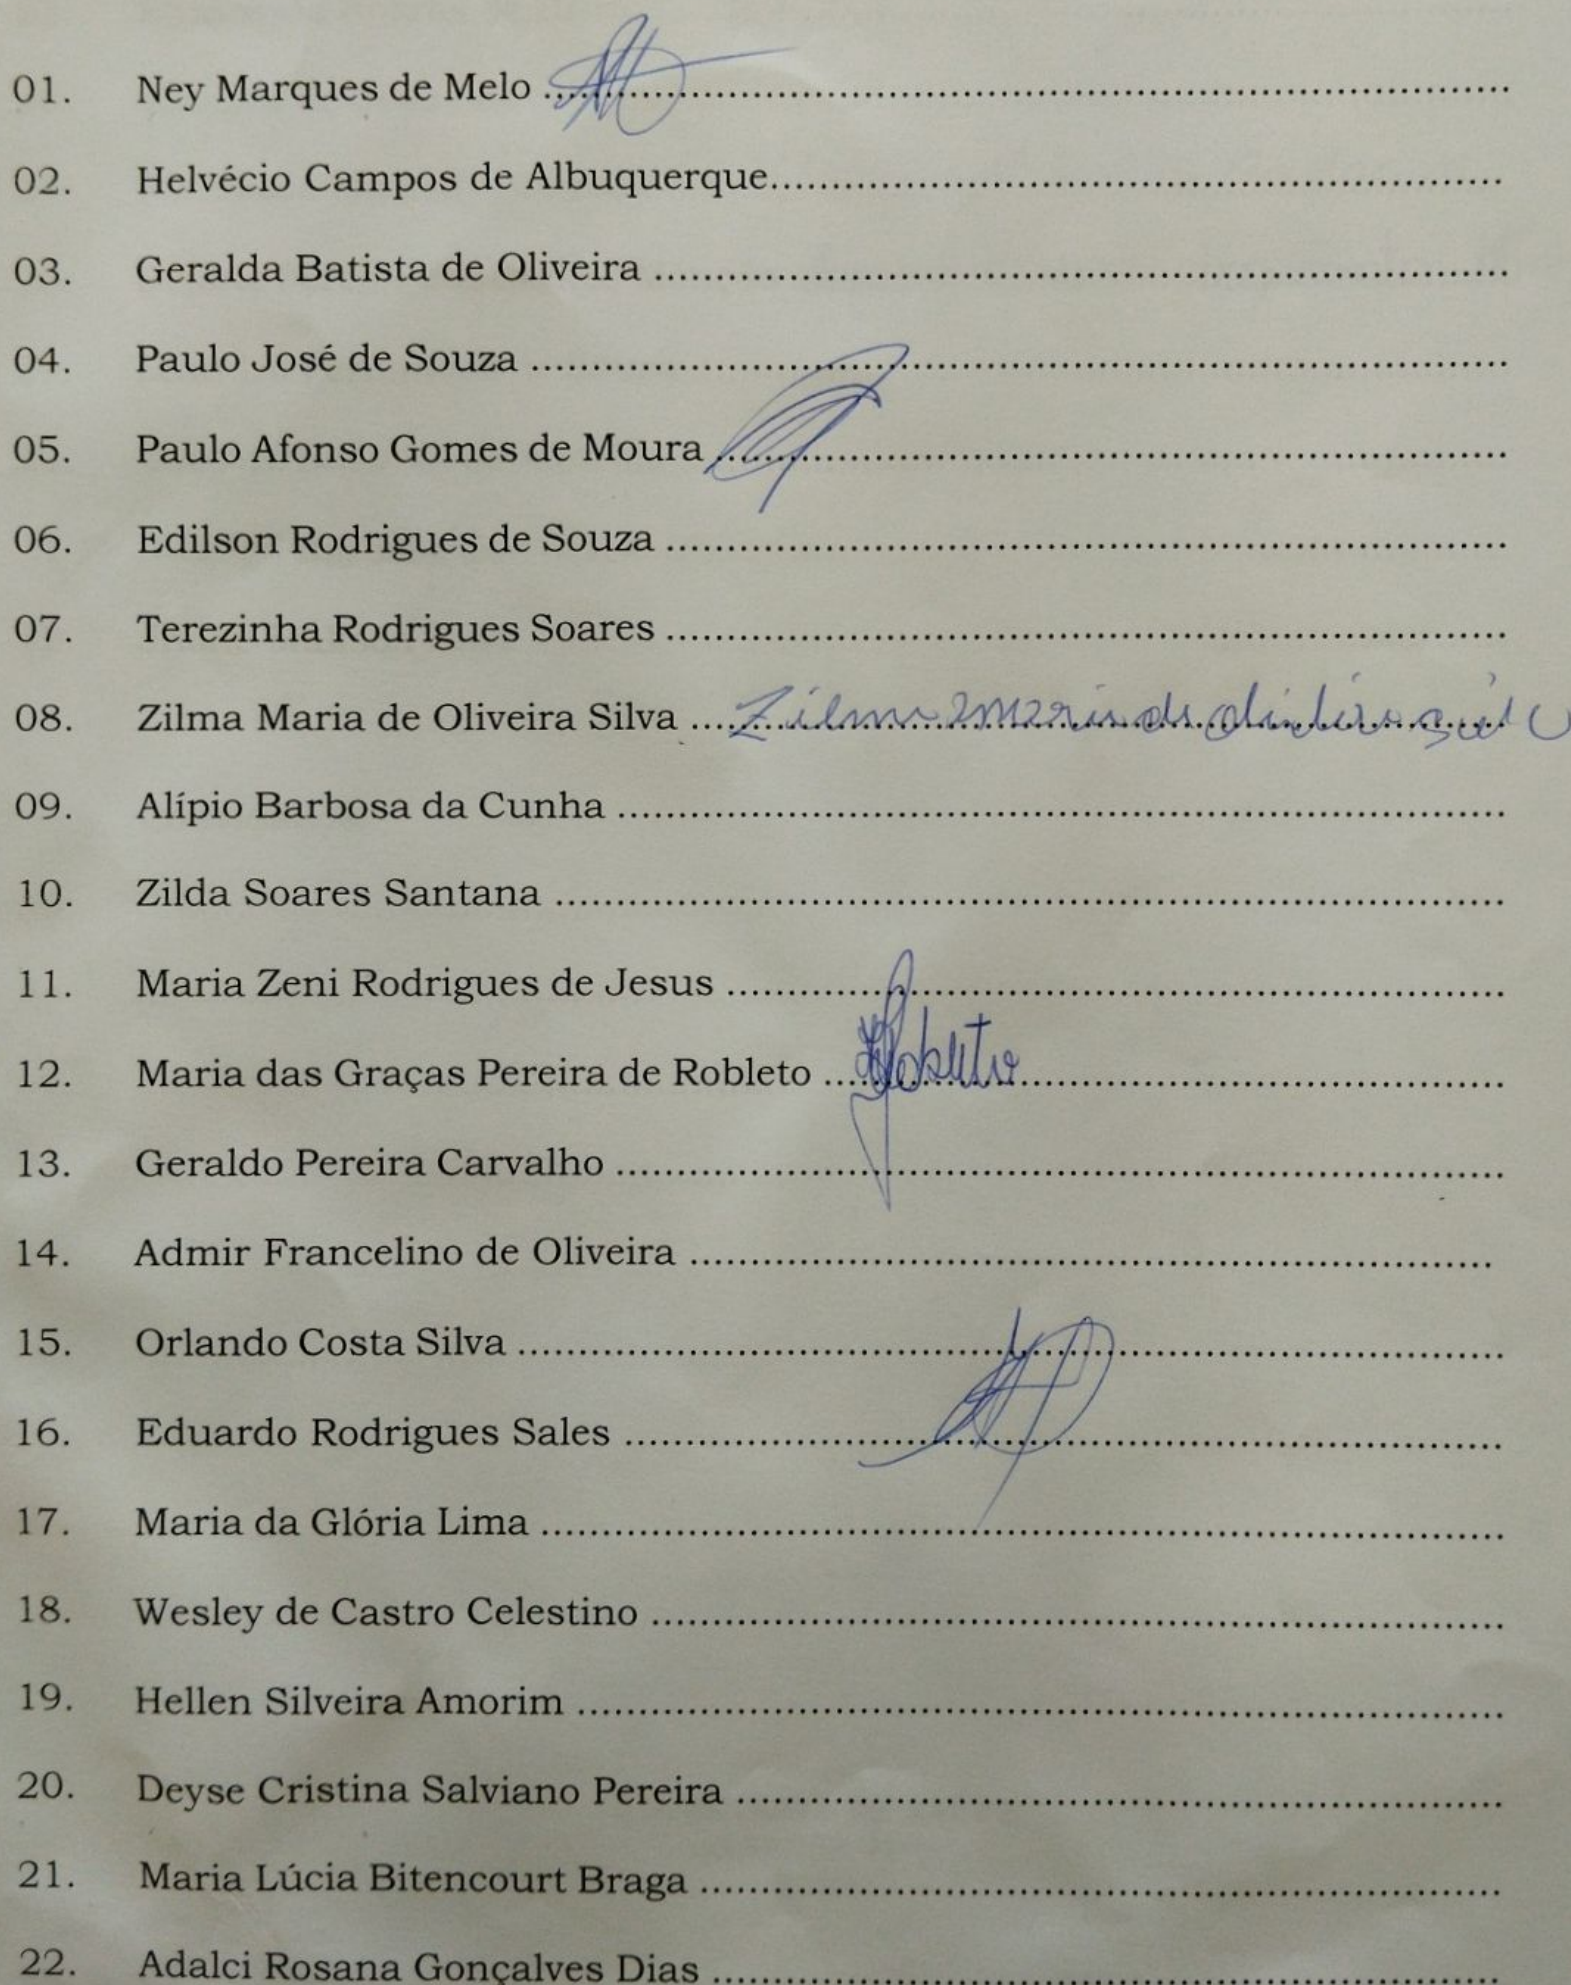 01. Ney Marques de Melo ................................................
02. Helvécio Campos de Albuquerque................................................
03. Geralda Batista de Oliveira ................................................
04. Paulo José de Souza ................................................
05. Paulo Afonso Gomes de Moura ................................................
06. Edilson Rodrigues de Souza ................................................
07. Terezinha Rodrigues Soares ................................................
08. Zilma Maria de Oliveira Silva .... Zilma Maria de Oliveira Silva
09. Alípio Barbosa da Cunha ................................................
10. Zilda Soares Santana ................................................
11. Maria Zeni Rodrigues de Jesus ................................................
12. Maria das Graças Pereira de Robleto .... Robleto ................................
13. Geraldo Pereira Carvalho ................................................
14. Admir Francelino de Oliveira ................................................
15. Orlando Costa Silva ................................................
16. Eduardo Rodrigues Sales ................................................
17. Maria da Glória Lima ................................................
18. Wesley de Castro Celestino ................................................
19. Hellen Silveira Amorim ................................................
20. Deyse Cristina Salviano Pereira ................................................
21. Maria Lúcia Bitencourt Braga ................................................
22. Adalci Rosana Gonçalves Dias ................................................